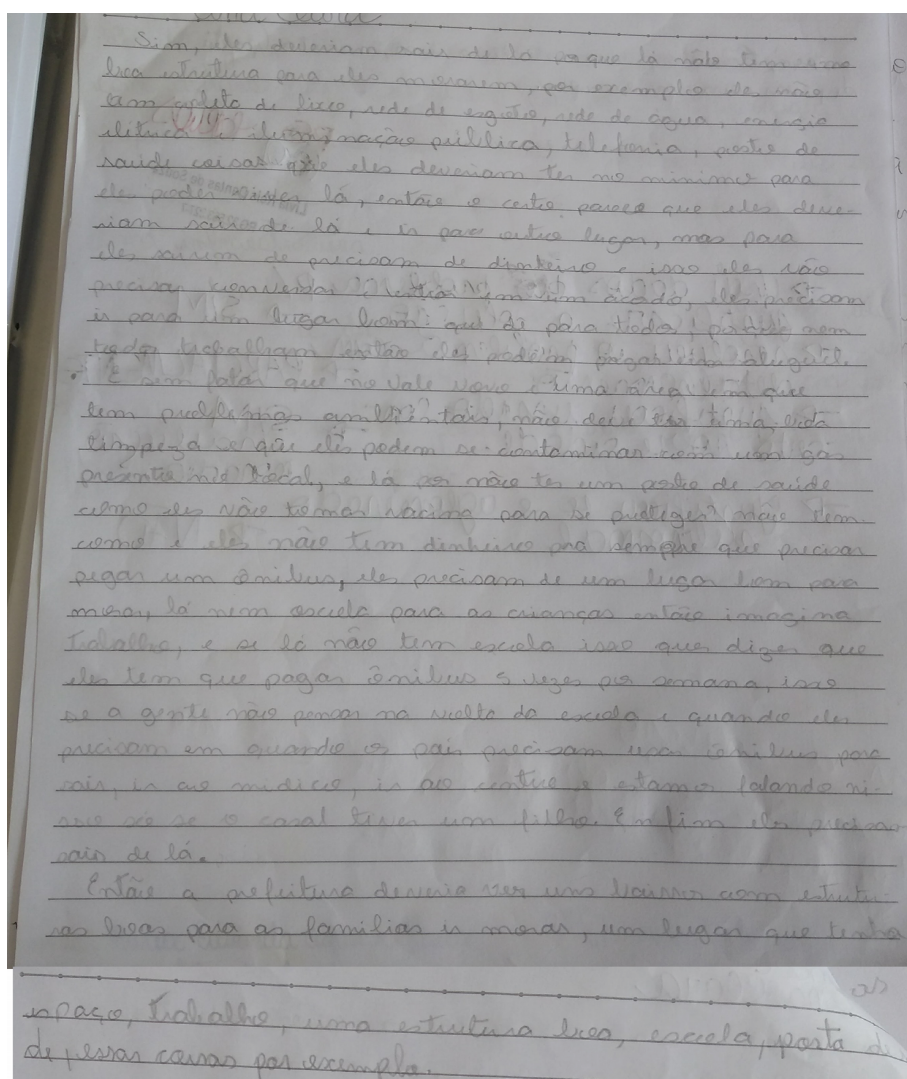 Sim, eles deveriam sair de lá porque lá não tem uma
boa estrutura para eles morarem, por exemplo eles não
tem coleta de lixo, rede de esgoto, rede de água, energia
elétrica e iluminação pública, telefonia, posto de
saúde coisas que eles deveriam ter no mínimo para
eles poder viver lá, então o certo parece que eles deve-
riam sair de lá e ir para outro lugar, mas para
eles sairem de precisam de dinheiro e isso eles não
precisar conversar em um acado, eles precisam
ir para um lugar bom que dê para todos, nem
todos trabalham então eles podem pagar aluguel.
E sem falar que no Vale Novo é uma área em que
tem problemas ambientais, não deve ter uma vida
limpeza e que eles podem se contaminar com um gás
presente no local, e lá não ter um posto de saúde
como eles vão tomar vacina para se proteger? não tem
como e eles não tem dinheiro pra sempre que precisar
pegar um ônibus, eles precisam de um lugar bom para
morar, lá nem escola para as crianças então imagina
trabalho, e se lá não tem escola isso quer dizer que
eles tem que pagar ônibus 5 vezes por semana, isso
se a gente não pensar na volta da escola e quando eles
precisam em quando os pais precisam usar ônibus para
sair, ir ao médico, ir ao centro e estamos falando ni-
sso só se o casal tiver um filho. Enfim eles precisam
sair de lá.
Então a prefeitura deveria ver um bairro com estrutu-
ras boas para as famílias ir morar, um lugar que tenha
espaço, trabalho, uma estrutura boa, escola, posto
de, essas coisas por exemplo.